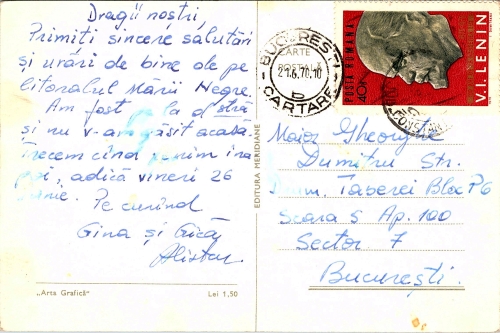 Dragii noștri,
Primiți sincere salutări
și urări de bine de pe
litoralul Mării Negre.
Am fost la dstră
și nu v-am găsit acasă.
Trecem cînd venim îna
poi, adică vineri 26
iunie.
Pe curînd
Gina și Gicǎ
„Arta Grafică"
Lei 1,50
EDITURA MERIDIANE
CARTE
POȘTALĂ
BUCUREȘTI
21.6.70.10
CARTARE
POSTA ROMANA
40B
V.I. LENIN
CONSTAN
Maior Gheorghe
Dumitru Str.
Drum. Taberei Bloc P6
Scara S Ap. 100
Sector 7
București.